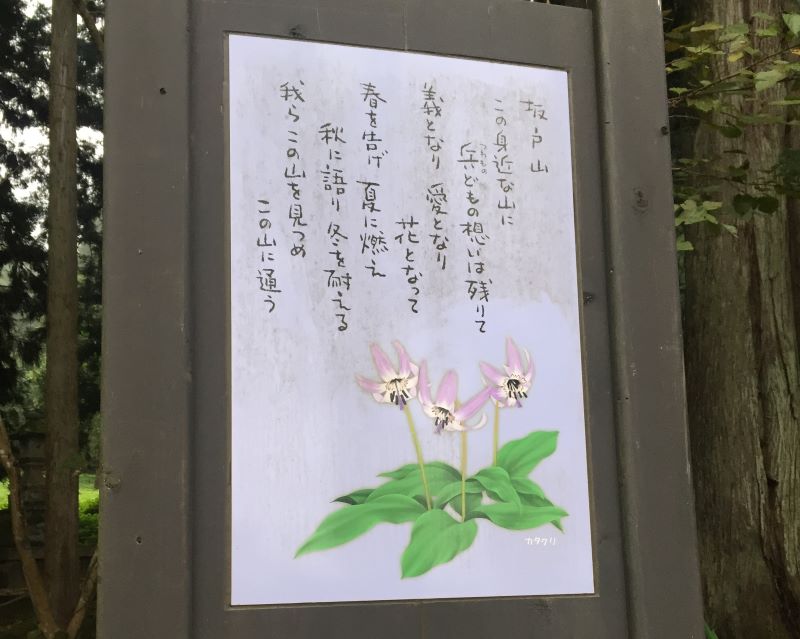 坂戸山
この身近な山に
兵どもの想いは残りて
つわもの
義となり 愛となり
花となって
春を告げ 夏に燃え
秋に語り 冬を耐える
我ら この山を見つめ
この山に通う
カタクリ